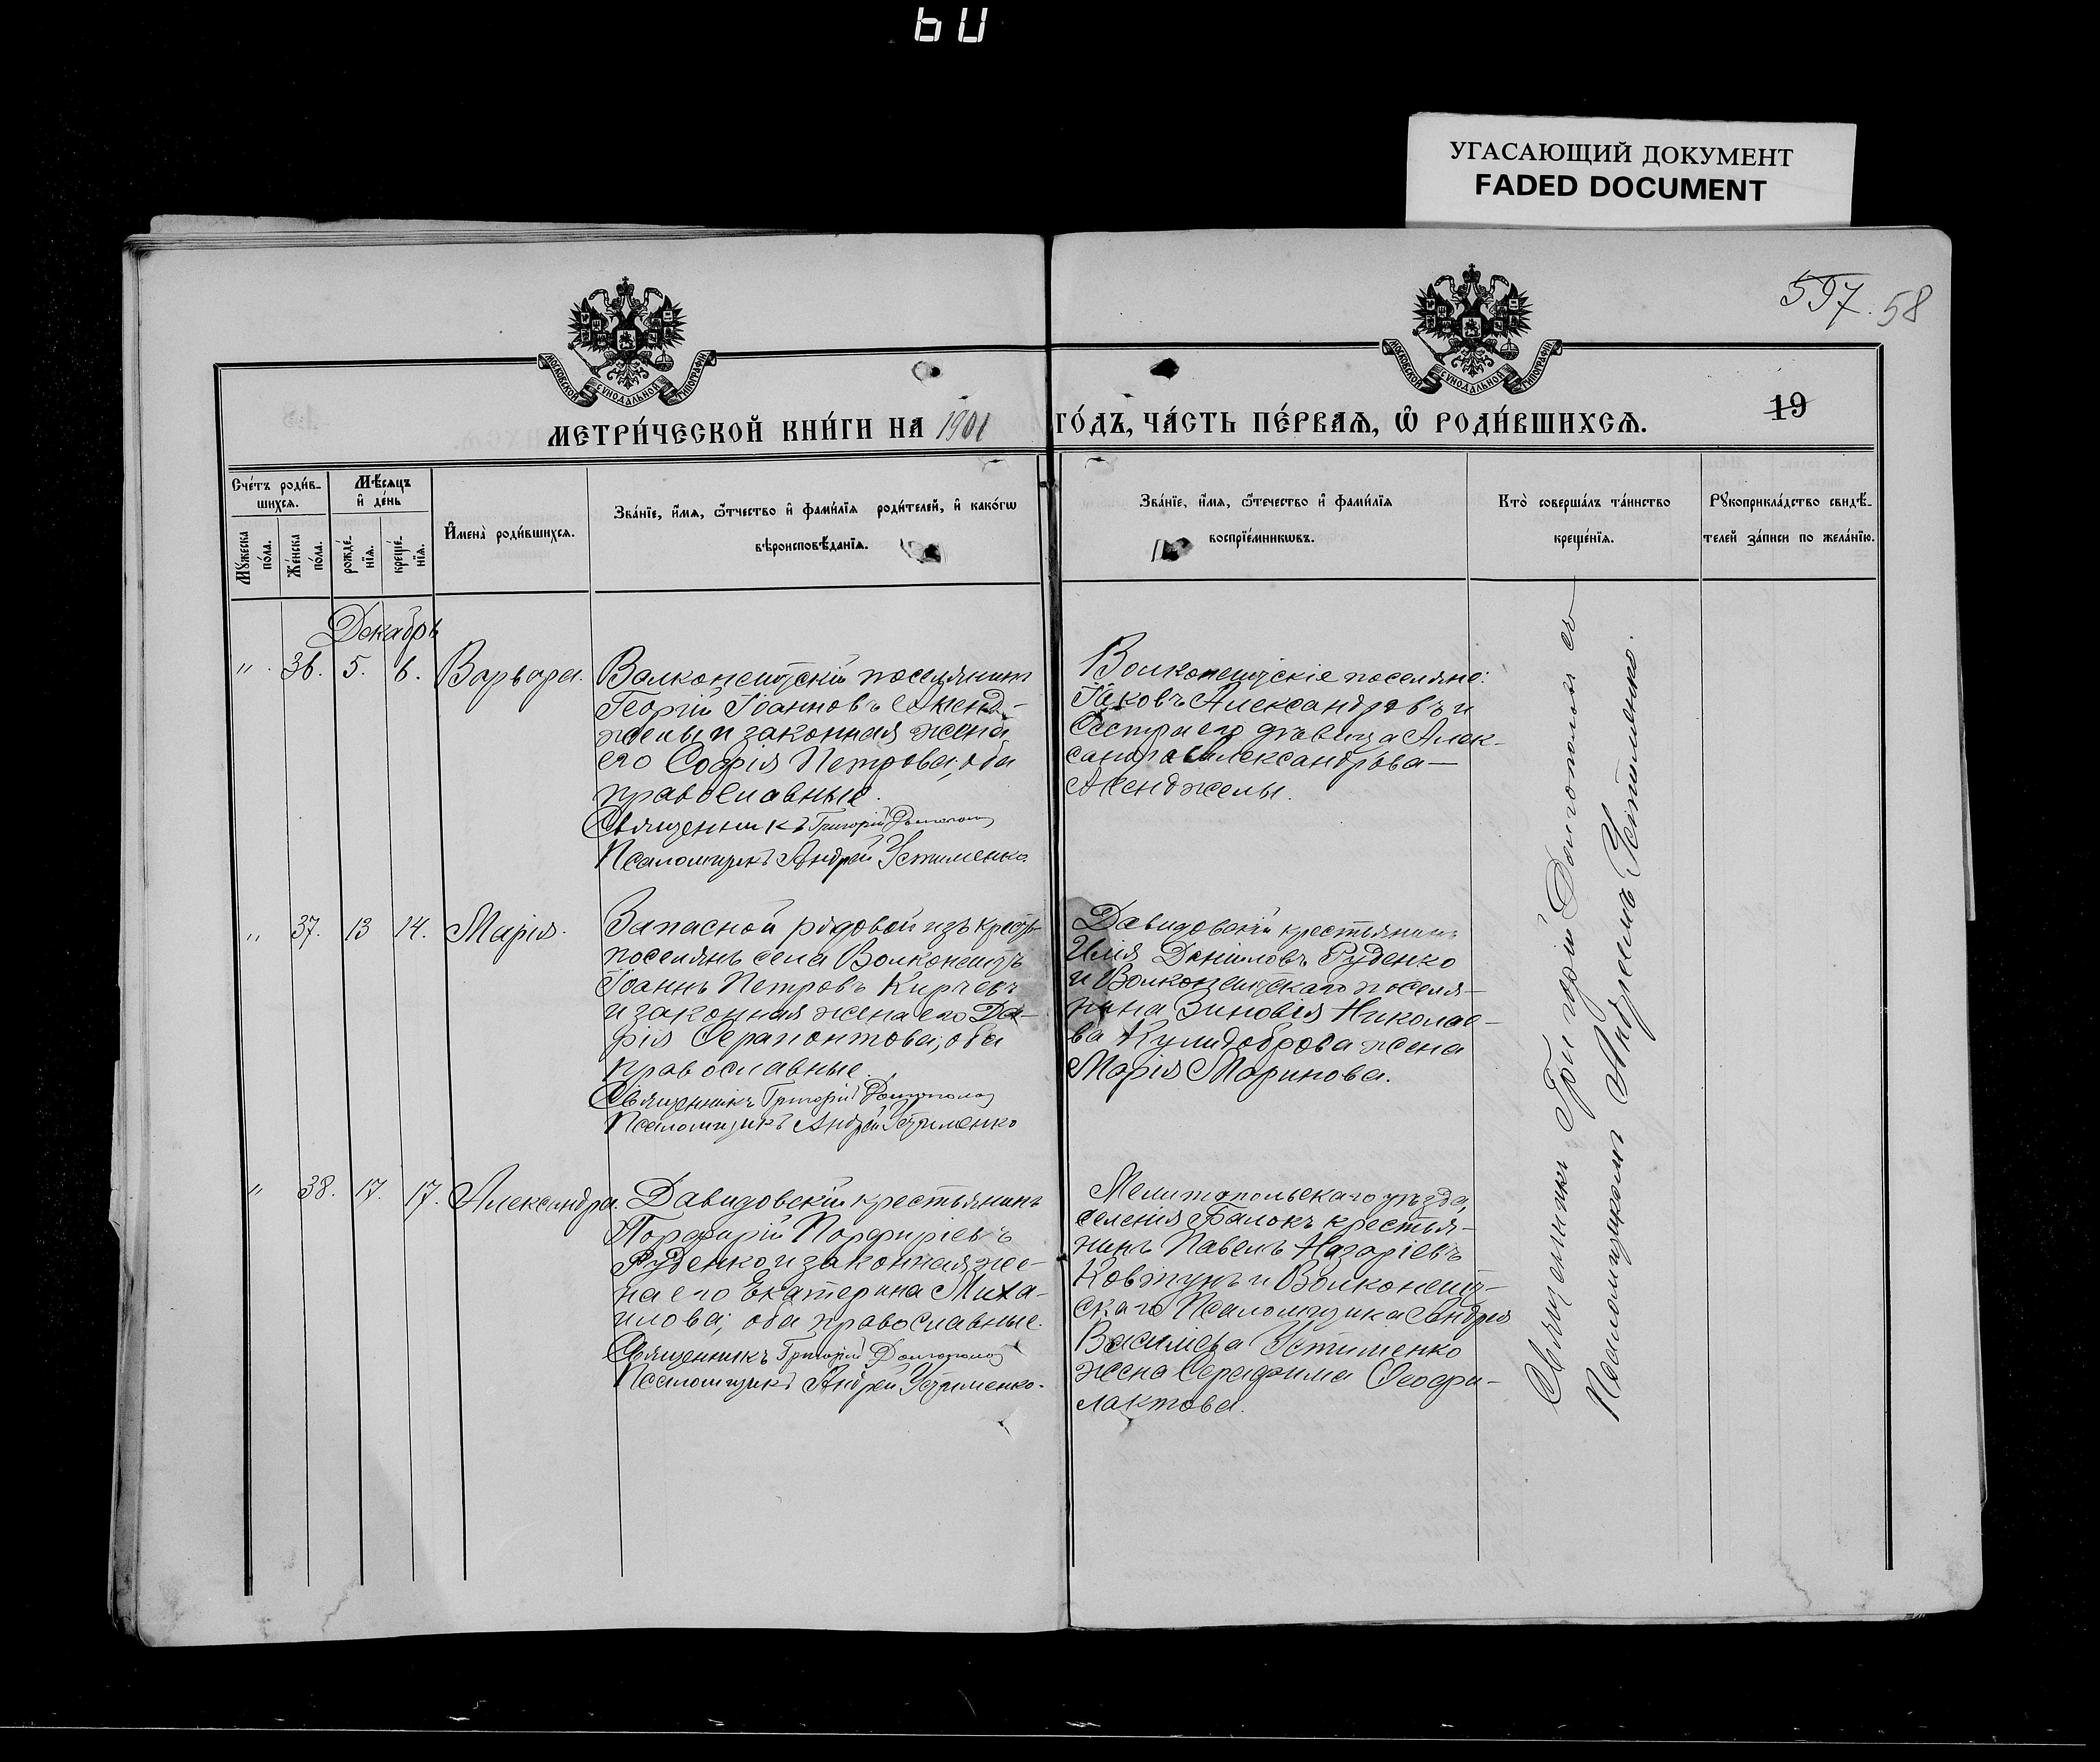 60
УГАСАЮЩИЙ ДОКУМЕНТ
FADED DOCUMENT
597. 58
МОСКОВСКОЙ СѴНОДАЛЬНОЙ ТИПОГРАФІИ
МОСКОВСКОЙ СѴНОДАЛЬНОЙ ТИПОГРАФІИ
19
МЕТРИ́ЧЕСКОЙ КНИ́ГИ НА 1901 ГО́ДЪ, ЧА́СТЬ ПЕ́РВАѦ, Ѡ҆ РОДИ́ВШИХСѦ.
Сче́тъ роди́в-
шихсѧ.
Мꙋ́жеска по́ла.
Же́нска по́ла.
Мѣ́сѧцъ
и҆ де́нь
рожде́-
нїѧ.
креще́-
нїѧ.
И҆мена̀ роди́вшихсѧ.
Зва́нїе, и҆́мѧ, ѻ҆́тчество и҆ фами́лїѧ роди́телей, и҆ како́гѡ
вѣроисповѣ́данїѧ.
Зва́нїе, и҆́мѧ, ѻ҆те́чество и҆ фами́лїѧ
воспрїе́мникѡвъ.
Кто̀ соверша́лъ та́инство
креще́нїѧ.
Рꙋкоприкла́дство свидѣ́-
телей за́писи по жела́нїю.
Декабрь
" 36. 5. 6. Варвара.
Волконештскій поселянинъ
Георгій Іоанновъ Аженд-
желы и законная жена
его Софія Петрова; оба
православные.
Священникъ Григорій Долгополов
Псаломщикъ Андрей Устименко
Волконештскіе поселяне:
Іаковъ Александровъ и
Сестра его дѣвица Алек-
сандра Александрова
Аженджелы.
" 37. 13 14. Марія.
Запасной рядовой изъ крест.
поселянъ села Волконештъ
Іоаннъ Петровъ Кирчевъ
и законная жена его Да-
рія Ферапонтова; оба
православные.
Священникъ Григорій Долгополов
Псаломщикъ Андрей Устименко
Давидовскій крестьянинъ
Илія Даніиловъ Руденко
и Волконештскаго поселя-
нина Зиновія Николае-
ва Кулидоброва жена
Марія Маринова.
" 38. 17. 17. Александра.
Давидовскій крестьянинъ
Порфирій Порфиріевъ
Руденко и законная же-
на его Екатерина Миха-
илова; оба православные.
Священникъ Григорій Долгополов
Псаломщикъ Андрей Устименко.
Мелитопольскаго уѣзда,
селенія Балокъ крестья-
нинъ Павелъ Назаріевъ
Ковтунъ и Волконешт-
скаго Псаломщика Андрея
Василіева Устименко
жена Серафима Феофи-
лактова.
Священникъ Григорій Долгополов съ
Псаломщикомъ Андреемъ Устименко.